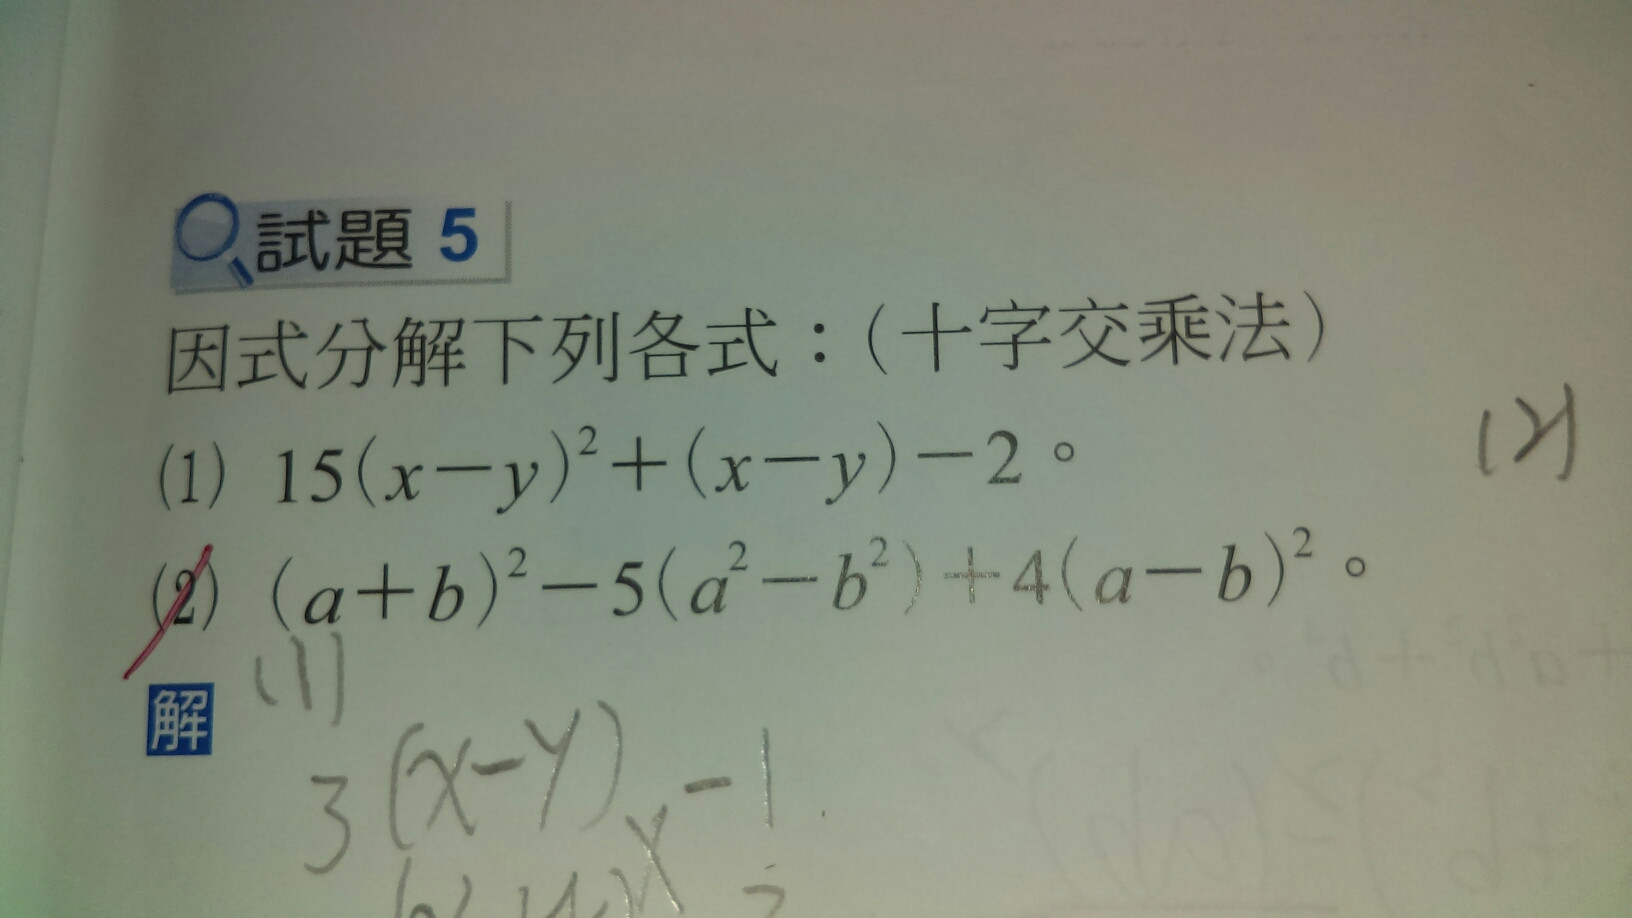 試題 5
因式分解下列各式：(十字交乘法)
(1) 15(x−y)²+(x−y)−2。
(2) (a+b)²−5(a²−b²)+4(a−b)²。
(2)
解 (1)
3(x-y) -1